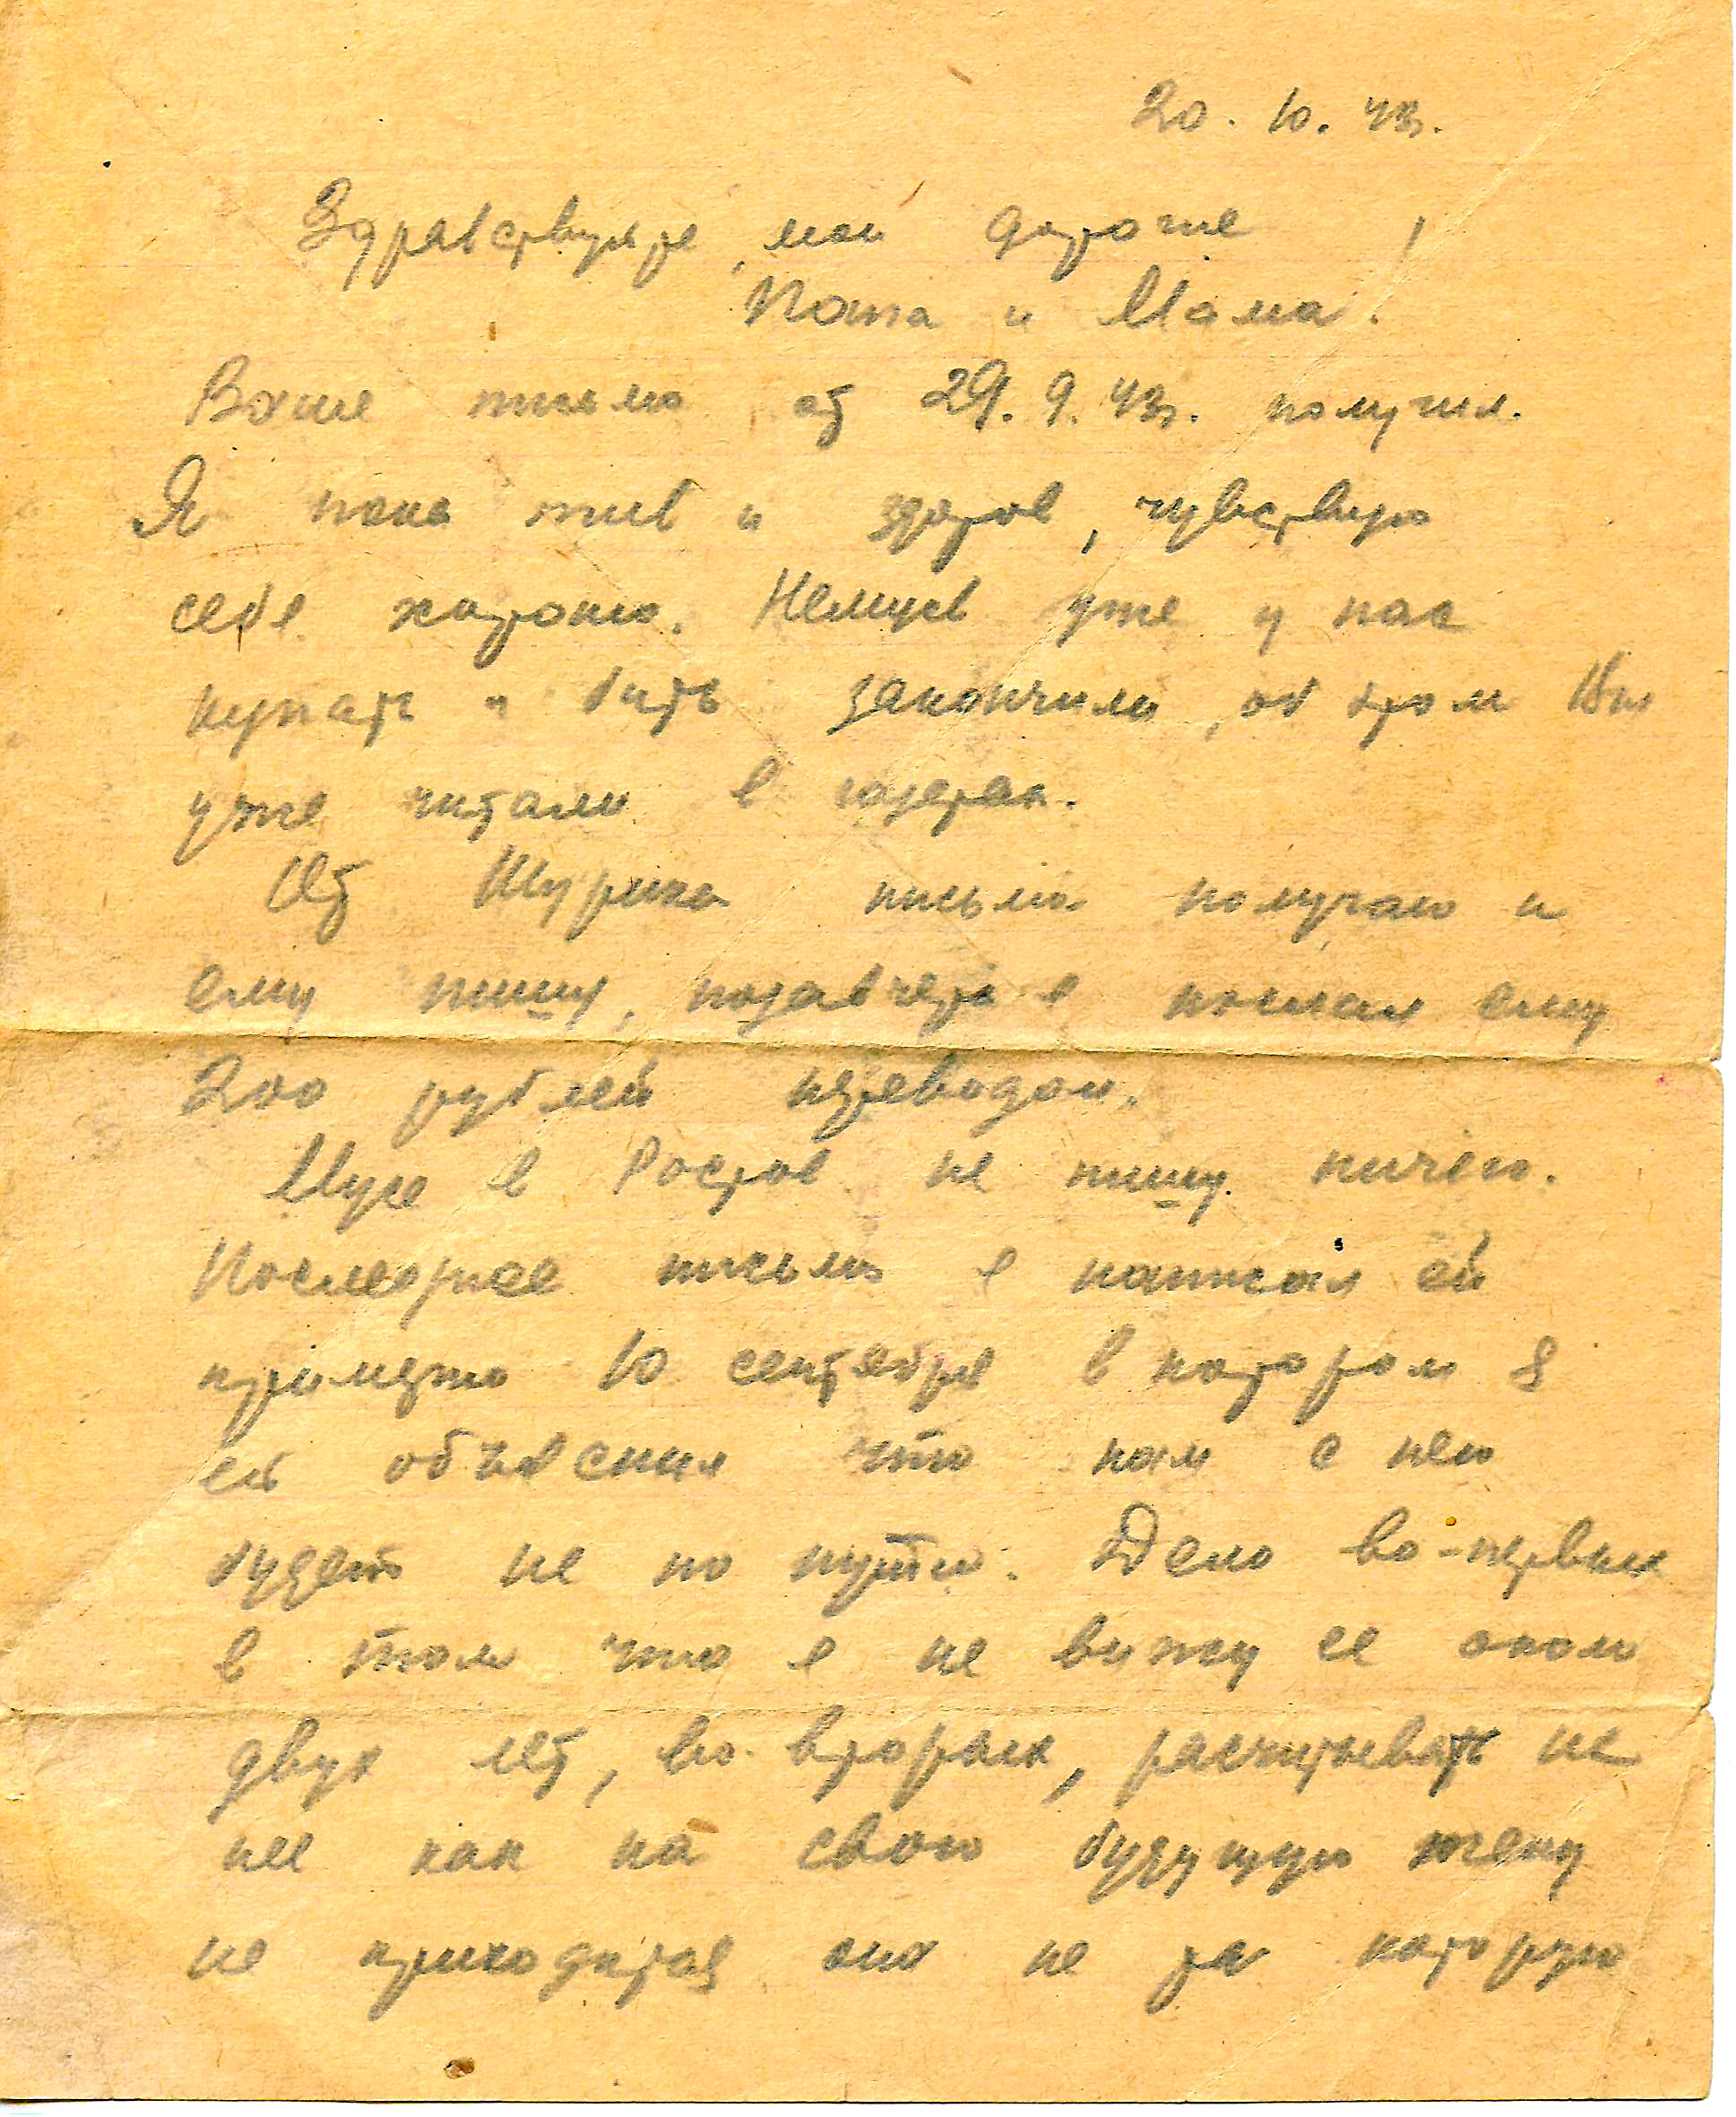 20. 10. 43г.
Здравствуйте, мои дорогие
Папа и Мама!
Ваше письмо от 29. 9. 43г. получил.
Я пока жив и здоров, чувствую
себя хорошо. Немцев уже у нас
купать и бить закончили, об этом Вы
уже читали в газетах.
От Шурика письма получаю и
ему пишу, позавчера я послал ему
200 рублей переводом.
Мусе в Ростов не пишу ничего.
Последнее письмо я написал ей
примерно 10 сентября в котором я
ей объяснил что нам с ней
будет не по пути. Дело во-первых
в том что я не вижу ее около
двух лет, во-вторых, расчитывать на
нее как на свою будущую жену
не приходится она не та которую